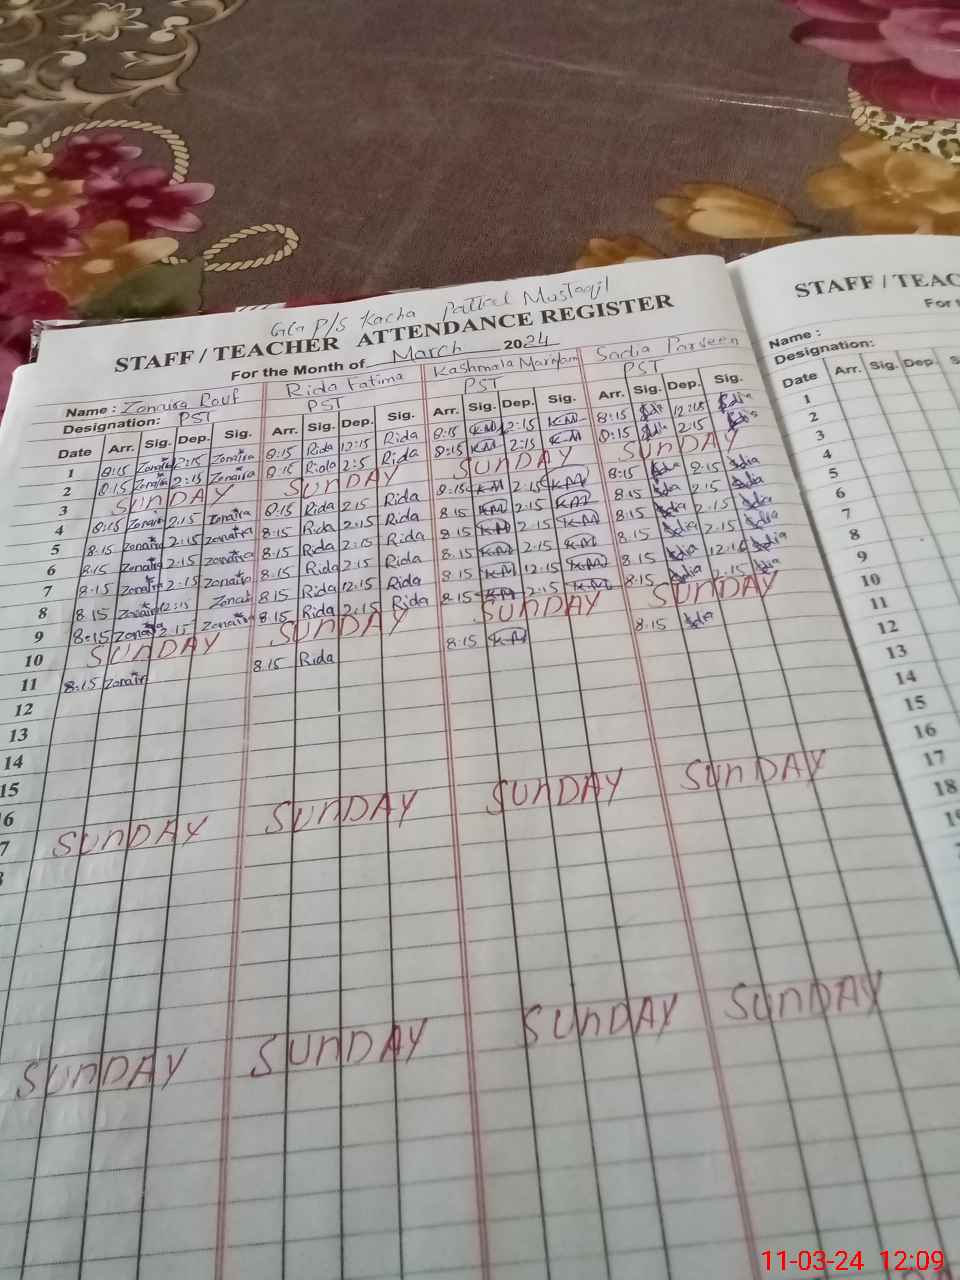 GGP/S Kacha Pattal Mustaqil
STAFF / TEACHER ATTENDANCE REGISTER
For the Month of March 2024
Name : Zonaira Rouf Rida Fatima Kashmala Mariyam Sadia Parveen
Designation: PST PST PST PST
Date Arr. Sig. Dep. Sig. Arr. Sig. Dep. Sig. Arr. Sig. Dep. Sig. Arr. Sig. Dep. Sig.
1 8:15 Zonaira 12:15 Zonaira 8:15 Rida 12:15 Rida 8:15 K.M 12:15 K.M 8:15 Sdia 12:15 Sdia
2 8:15 Zonaira 2:15 Zonaira 8:15 Rida 2:5 Rida 8:15 K.M 2:15 K.M 8:15 Sdia 2.15 Sdia
3 SUNDAY SUNDAY SUNDAY SUNDAY
4 8:15 Zonaira 2.15 Zonaira 8.15 Rida 2.15 Rida 8.15 K.M 2.15 K.M 8:15 Sdia 2.15 Sdia
5 8.15 Zonaira 2.15 Zonaira 8.15 Rida 2.15 Rida 8.15 K.M 2.15 K.M 8.15 Sdia 2.15 Sdia
6 8.15 Zonaira 2.15 Zonaira 8.15 Rida 2:15 Rida 8.15 K.M 2.15 K.M 8.15 Sdia 2.15 Sdia
7 8.15 Zonaira 2.15 Zonaira 8.15 Rida 2.15 Rida 8.15 K.M 2.15 K.M 8.15 Sdia 2.15 Sdia
8 8.15 Zonaira 12:15 Zonair 8.15 Rida 12.15 Rida 8.15 K.M 12.15 K.M 8.15 Sdia 12.15 Sdia
9 8:15 Zonaira 2.15 Zonaira 8.15 Rida 2.15 Rida 8.15 K.M 2.15 K.M 8.15 Sdia 2.15 Sdia
10 SUNDAY SUNDAY SUNDAY SUNDAY
11 8.15 Zonair 8.15 Rida 8.15 K.M 8.15 Sdia
12
13
14
15
6
7 SUNDAY SUNDAY SUNDAY SUNDAY
SUNDAY SUNDAY SUNDAY SUNDAY
STAFF / TEAC
For t
Name :
Designation:
Date Arr. Sig. Dep. S
1
2
3
4
5
6
7
8
9
10
11
12
13
14
15
16
17
18
11-03-24 12:09